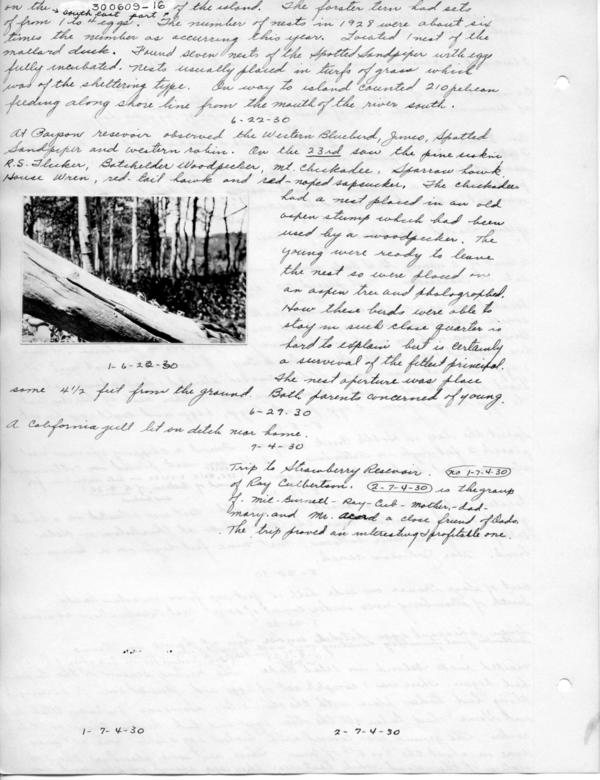 300609-16
on the south east part of the island. The forster tern had sets
of from 1 to 4 eggs. The number of nests in 1928 were about six
times the number as occurring this year. Located 1 nest of the
mallard dusk. Found seven nests of the Spotted Sandpiper with eggs
fully incubated. Nests usually placed in turfs of grass which
was of the sheltering type. On way to island counted 210 pelican
feeding along shore line from the mouth of the river south.
6-22-30
At Payson resevoir observed the Western Bluebird, Junco, Spotted
Sandpiper and western robin. On the 23rd saw the pine siskin
R.S. Flicker, Batchelder Woodpecker, Mt. Chickadee, Sparrow hawk
House Wren, red tail hawk and red naped sapsucker. The chickadee
had a nest placed in an old
aspen stump which had been
used by a woodpecker. The
young were ready to leave
the nest so were placed on
an aspen tree and photographed.
How these birds were able to
stay in such close quarter is
hard to explain but is certainly
a survival of the fittest principal.
The nest aperture was place
1-6-22-30
some 4½ feet from the ground. Both parents concerned of young.
6-29-30
A California gull lit on ditch near home.
7-4-30
Trip to Strawberry Resevoir. no 1-7-4-30
of Ray Culbertson. 2-7-4-30 is the group
of. Mil-Burnell-Ray-Cub-Mother,-dad-
mary. and Mr. acord a close friend of Dads.
The trip proved an interesting & profitable one.
1-7-4-30
2-7-4-30